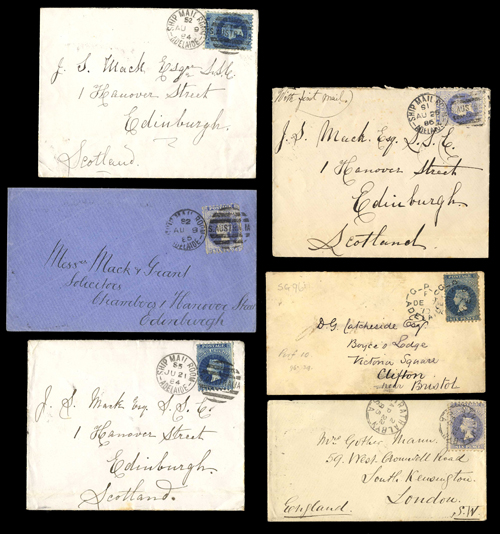 SHIP MAIL ROOM
52
AU 9
84
ADELAIDE
J. S. Mack Esqr S.S.C.
1 Hanover Street
Edinburgh.
Scotland.
SHIP MAIL ROOM
52
AU 9
ADELAIDE
AUST
Messrs Mack & Grant
Solicitors
Chambers 1 Hanover Street
Edinburgh
SHIP MAIL ROOM
JU 21
84
ADELAIDE
J. S. Mack Esq. S.S.C.
1 Hanover Street
Edinburgh.
Scotland.
With first mail.
SHIP MAIL ROOM
AU
86
ADELAIDE
J. S. Mack Esq. S.S.C.
1 Hanover Street
Edinburgh
Scotland.
SG 96
Perf 10
D. G. Catcheside Esqr
Boyce's Lodge
Victoria Square
Clifton
near Bristol
Mrs Gother Mann.
59. West Cromwell Road
South Kensington
London.
England. S.W